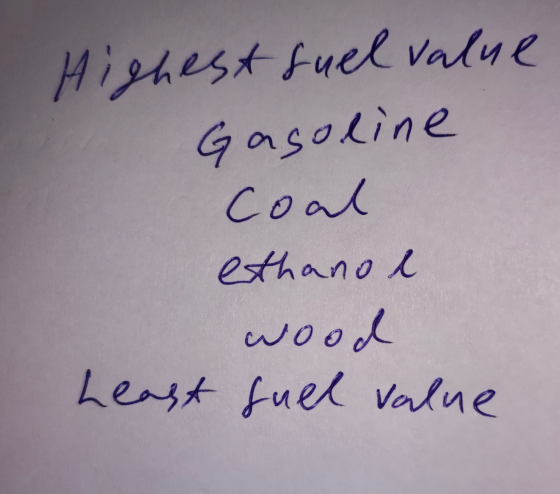 Highest fuel value
Gasoline
Coal
ethanol
wood
Least fuel value